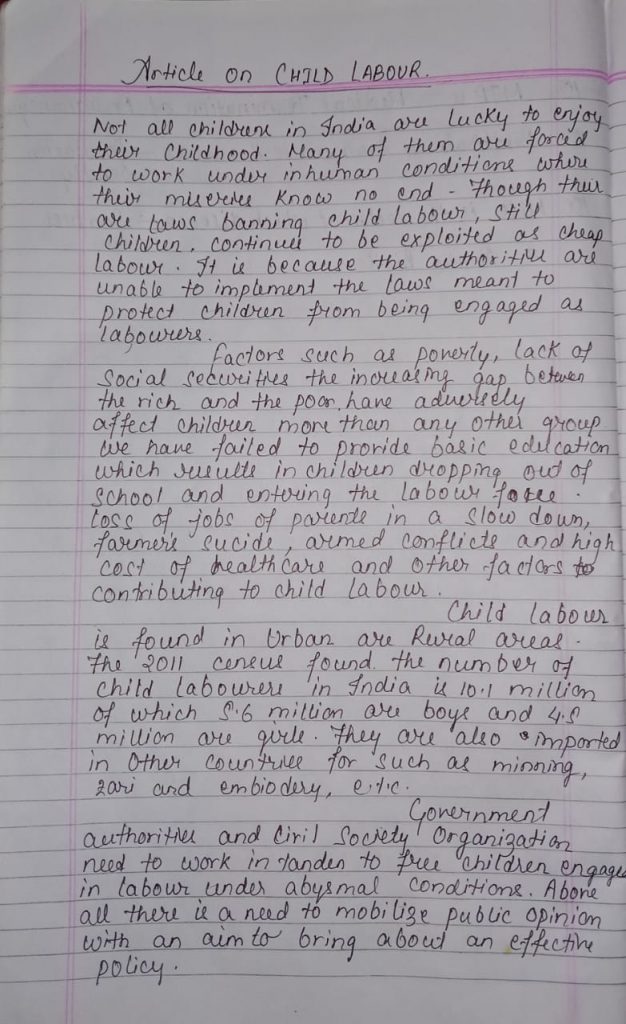 Article on CHILD LABOUR.
Not all childrens in India are lucky to enjoy
their Childhood. Many of them are forced
to work under inhuman conditions where
their miseries know no end - Though their
are laws banning child labour, still
children, continues to be exploited as cheap
labour. It is because the authorities are
unable to implement the laws meant to
protect children from being engaged as
labourers.
factors such as poverty, lack of
Social securities the increasing gap between
the rich and the poor, have adversely
affect children more than any other group
we have failed to provide basic education
which results in children dropping out of
school and entering the labour force.
Loss of jobs of parents in a slow down,
farmer's sucide, armed conflicts and high
cost of healthcare and other factors to
contributing to child labour.
Child labour
is found in Urban are Rural areas.
The 2011 census found the number of
child labourers in India is 10.1 million
of which 5.6 million are boys and 4.5
million are girls. They are also imported
in Other countries for such as minning,
zari and embiodery, e.t.c.
Government
authorities and Civil Society Organization
need to work in tanden to free children engages
in labour under abysmal conditions. Above
all there is a need to mobilize public opinion
with an aim to bring about an effective
policy.